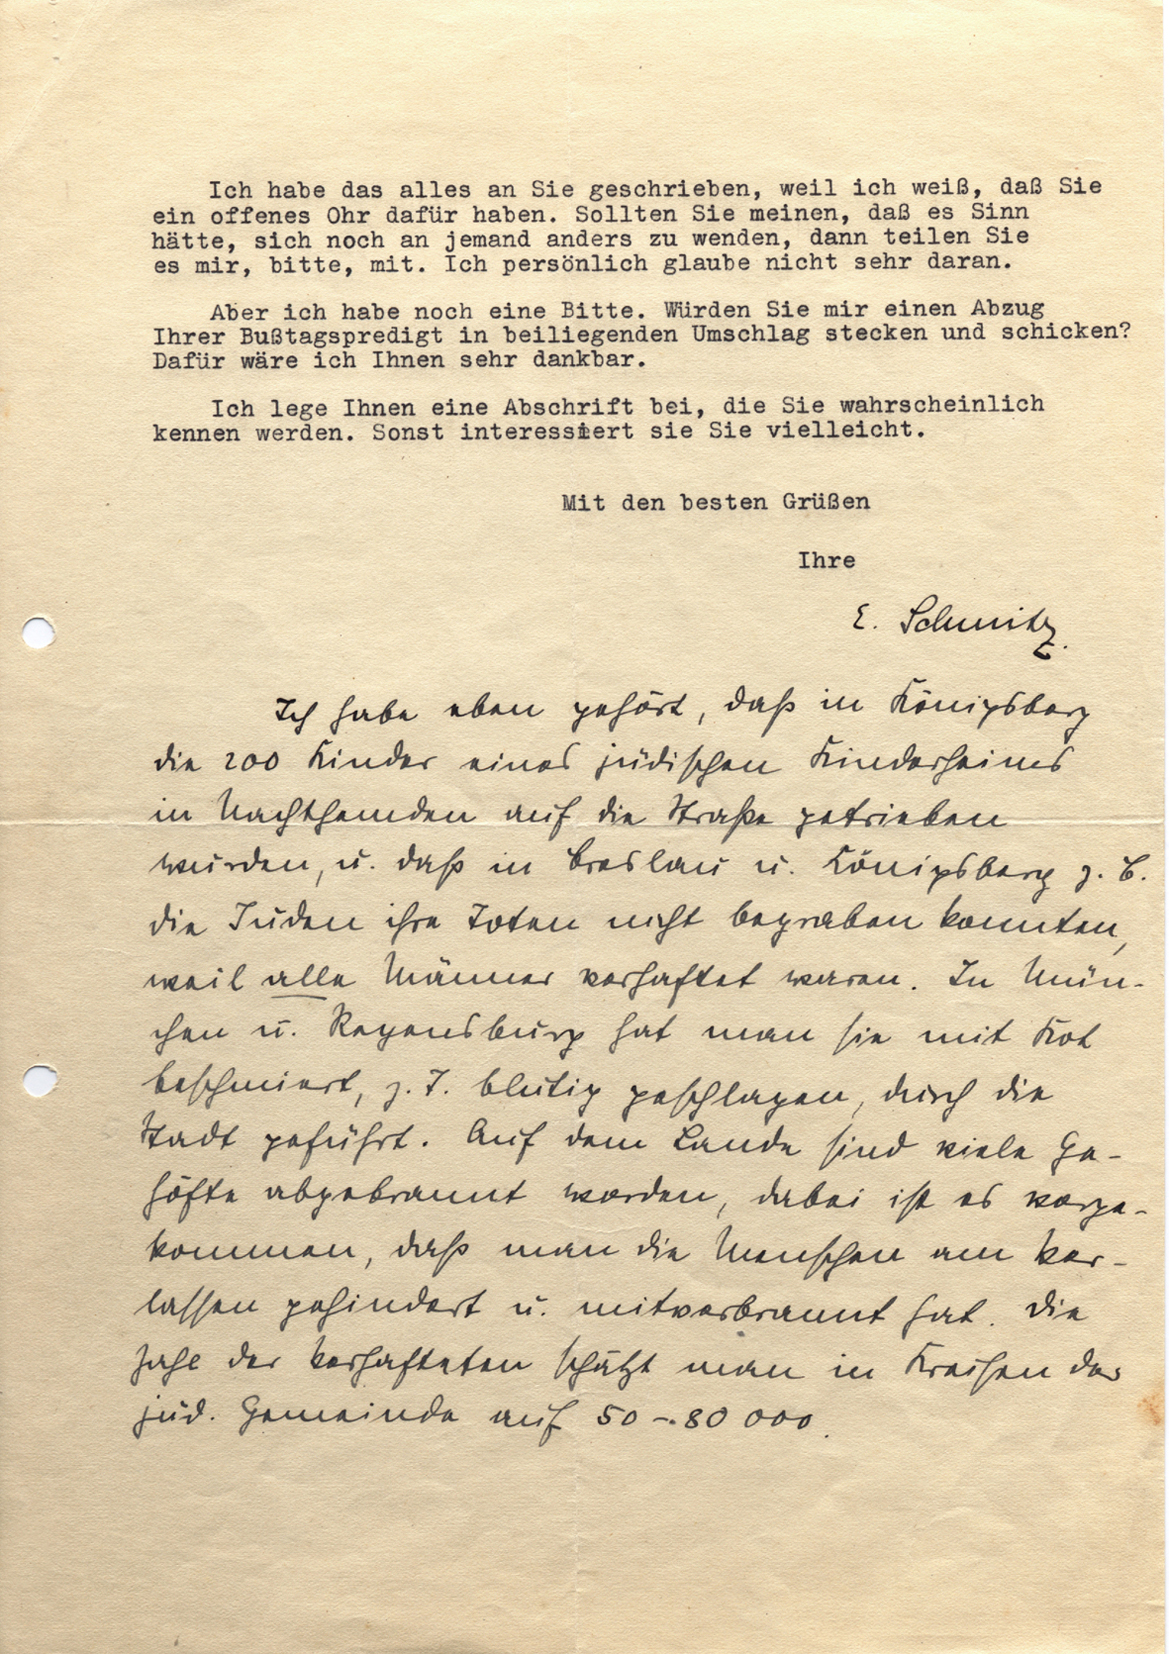 Ich habe das alles an Sie geschrieben, weil ich weiß, daß Sie
ein offenes Ohr dafür haben. Sollten Sie meinen, daß es Sinn
hätte, sich noch an jemand anders zu wenden, dann teilen Sie
es mir, bitte, mit. Ich persönlich glaube nicht sehr daran.
Aber ich habe noch eine Bitte. Würden Sie mir einen Abzug
Ihrer Bußtagspredigt in beiliegenden Umschlag stecken und schicken?
Dafür wäre ich Ihnen sehr dankbar.
Ich lege Ihnen eine Abschrift bei, die Sie wahrscheinlich
kennen werden. Sonst interessiert sie Sie vielleicht.
Mit den besten Grüßen
Ihre
E. Schmitz.
Ich habe eben gehört, daß in Königsberg
die 200 Kinder eines jüdischen Kinderheims
in Nachthemden auf die Straße getrieben
wurden, u. daß in Breslau u. Königsberg z. B.
die Juden ihre Toten nicht begraben konnten,
weil alle Männer verhaftet waren. In Mün-
chen u. Regensburg hat man sie mit Kot
beschmiert, z. T. blutig geschlagen, durch die
Stadt geführt. Auf dem Lande sind viele Ge-
höfte abgebrannt worden, dabei ist es vorge-
kommen, daß man die Menschen am Ver-
lassen gehindert u. mitverbrannt hat. Die
Zahl der Verhafteten schätzt man in Kreisen der
jüd. Gemeinde auf 50 - 80 000.